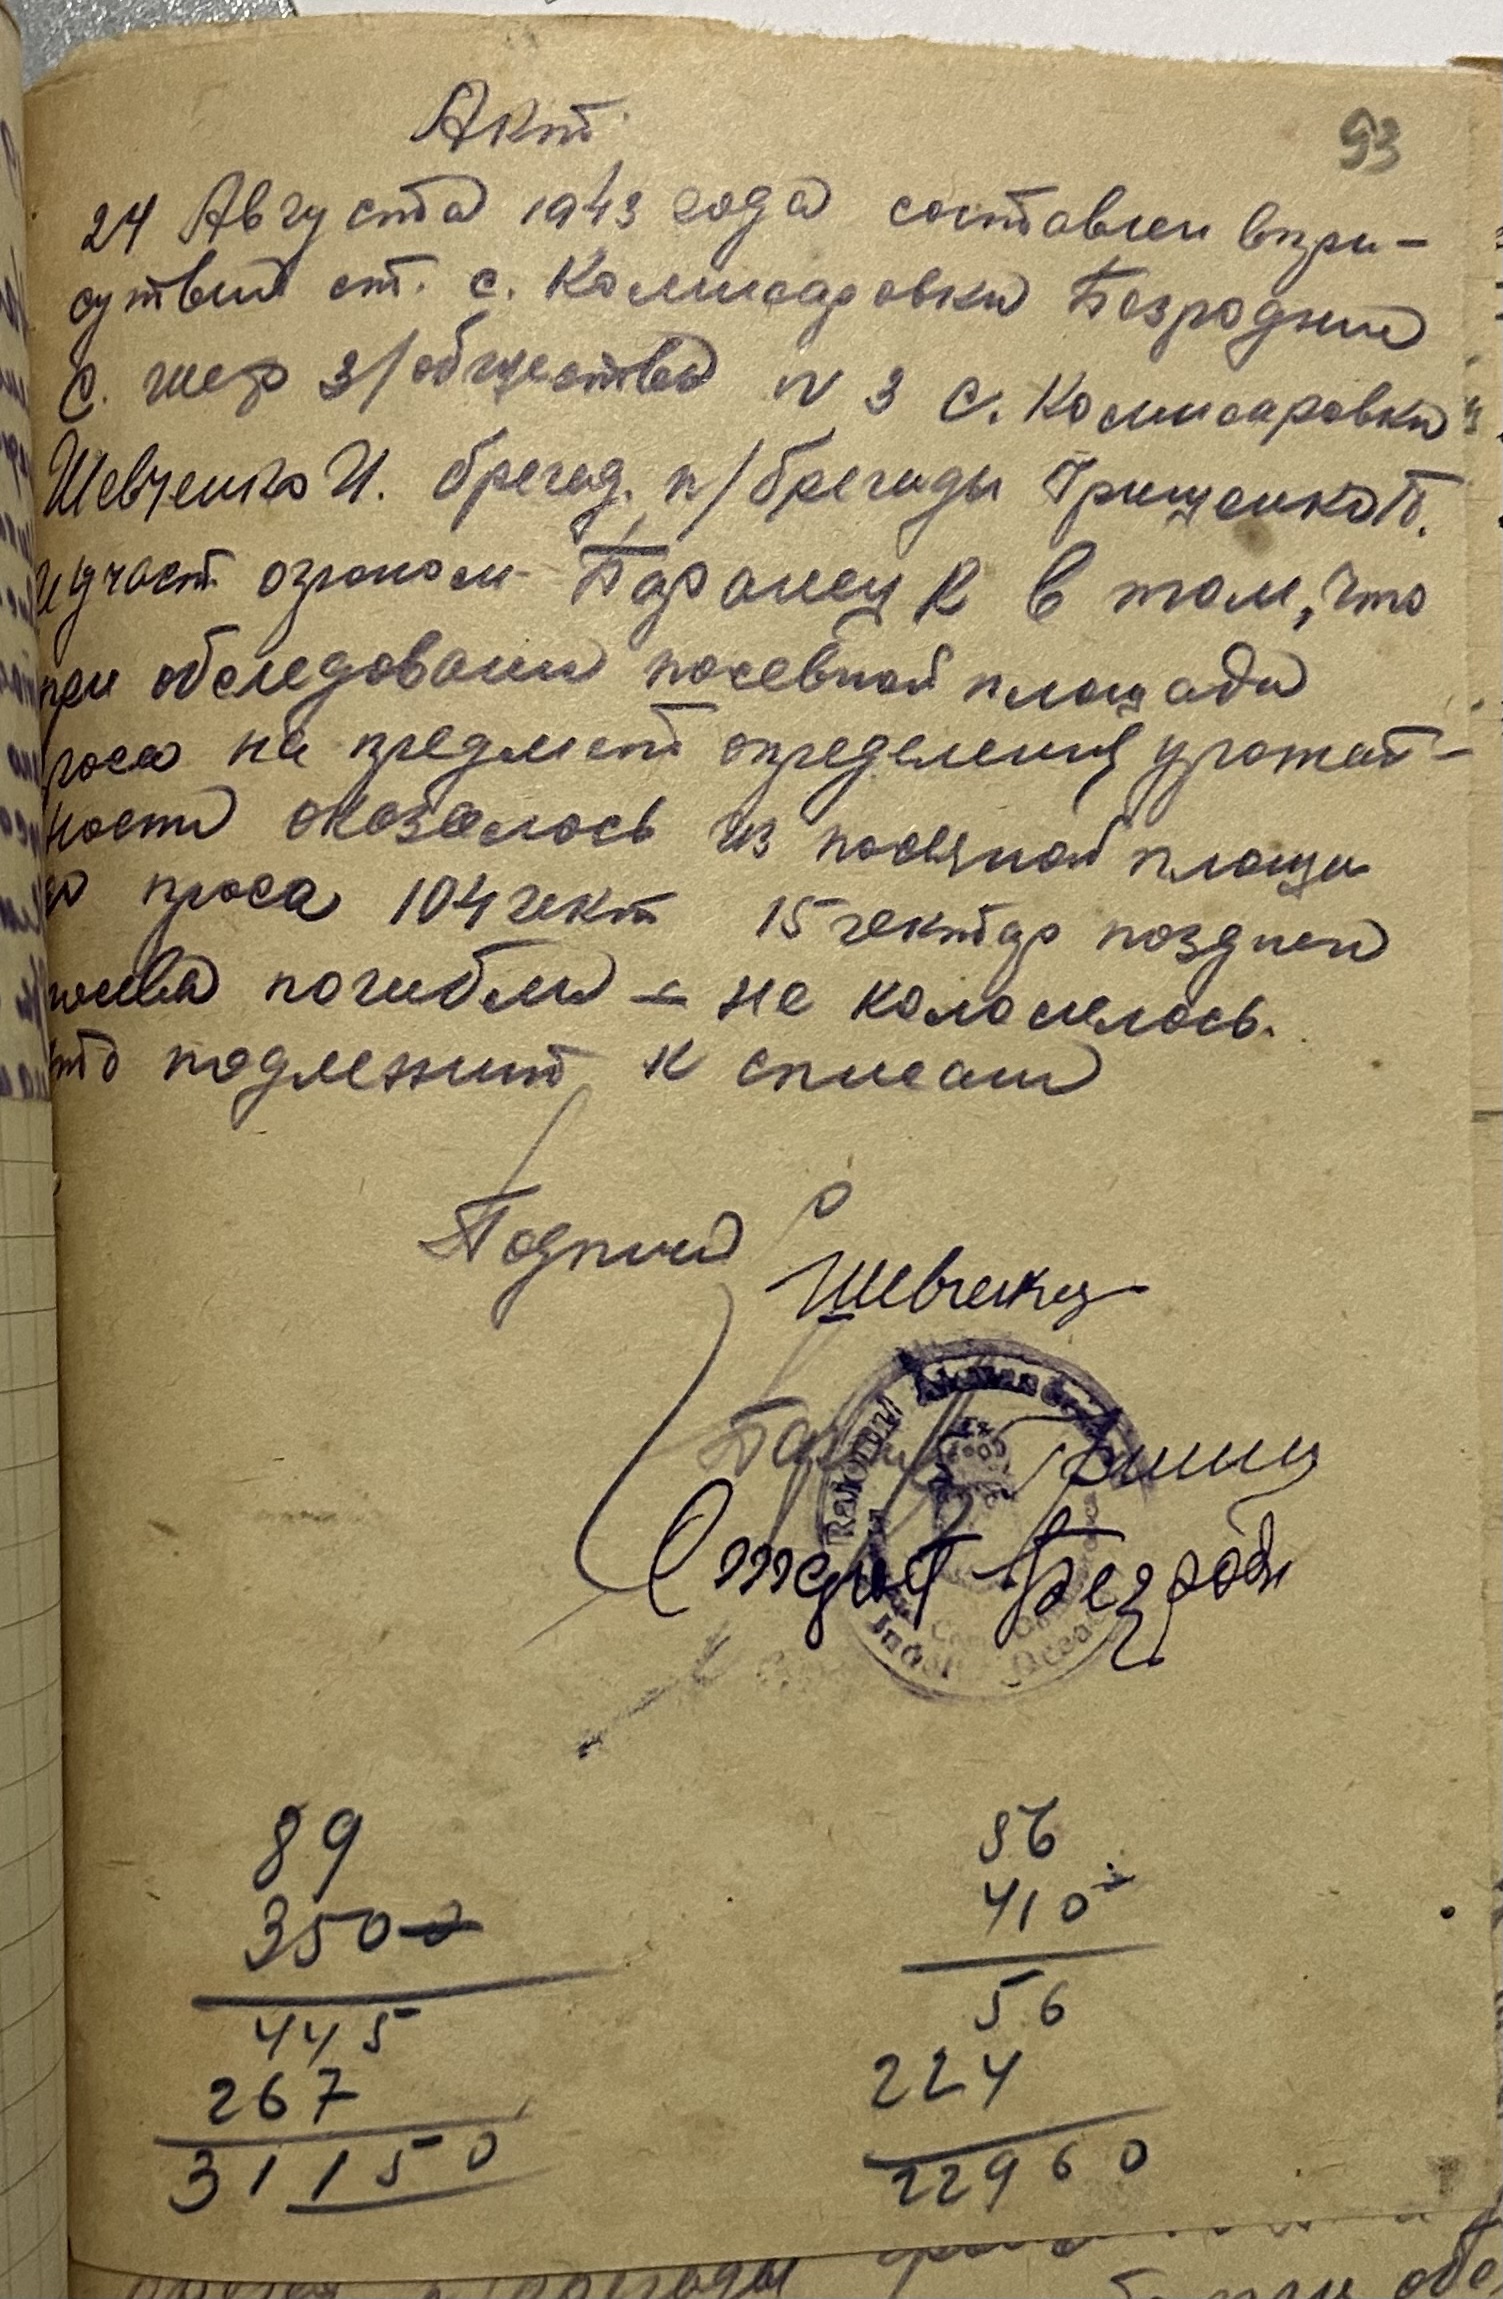 93
Акт
24 Августа 1943 года составлен впри-
сутвии ст. с. Комисаровки Безродний
С. шеф з/общества N 3 с. Комисаровки
Шевченко И. брегад. п/брегады Грищенко П.
и участ огроном Баранец К в том, что
при обследовании посевной площади
проса на предмет определения урожай-
ности оказалось из посеяной площи
до проса 104 гект 15 гектар поздней
посева погибли - не колоселось.
что подлежит к списаии
Подписи
Шевченко
Безродн
89
3500
445
267
31150
56
410
56
224
22960